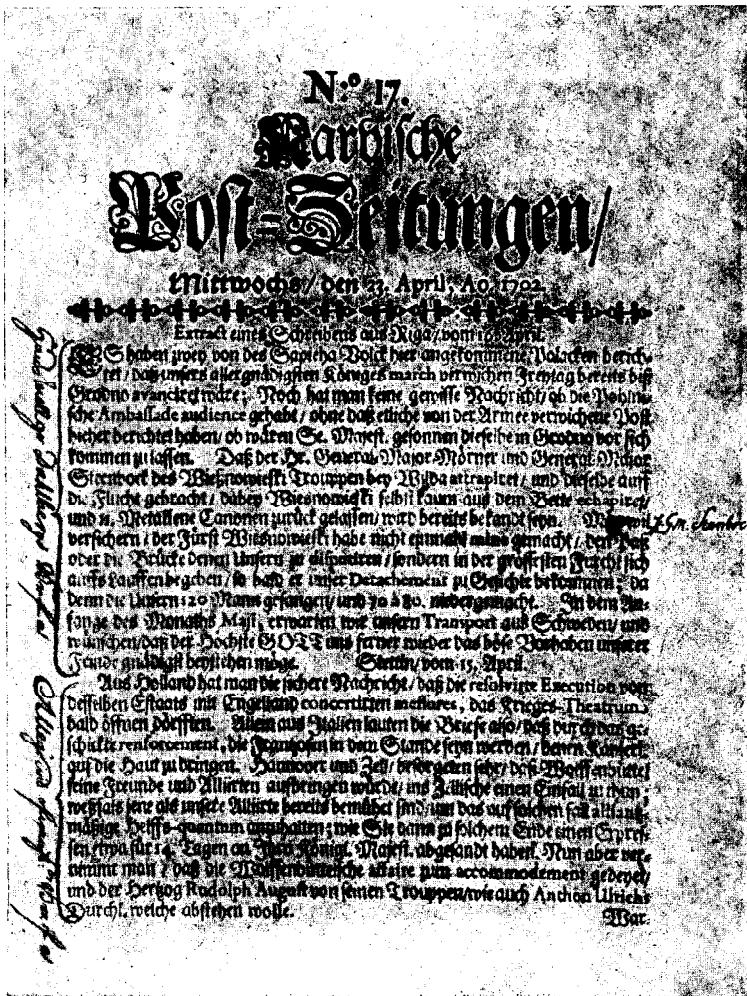 N.º 17.
Narvische
Post=Zeitungen/
Mittwochs/ den 23. April, Ao. 1702.
Extract eines Schreibens aus Riga/ vom April.
ES haben zwey von des Sapieha Volck hier angekommene Polacken berich-
tet/ daß unsers allergnädigsten Königes march verwichen Freytag bereits biß
Grodno avanciret wäre; Noch hat man keine gewisse Nachricht/ ob die Pohlni-
sche Ambassade audience gehabt/ ohne daß etliche von der Armee verwichene Post
hieher berichtet haben/ ob wären Se. Majest. gesonnen dieselbe in Grodno vor sich
kommen zu lassen. Daß der Hr. General-Major Mörner und General-Major
des Trouppen bey Wilda attrapiret/ und dieselbe auff
die Flucht gebracht/ dabey selbst kaum aus dem Bette echapiret/
und 11. Metallene Canonen zurück gelassen/ wird bereits bekandt seyn. Man wil
versichern/ der Fürst habe nicht einmahl mine gemacht/ den Paß
oder die Brücke denen Unsern zu disputiren/ sondern in der grössesten Furcht sich
auffs Lauffen begeben/ so bald er unser Detachement zu Gesichte bekommen; da
denn die Unsern 120 Mann gefangen/ und 70 à 80. niedergemacht. In dem An-
fange des Monaths Maji, erwarten wir unsern Transport aus Schweden/ und
wünschen/ daß der Höchste GOTT uns ferner wieder das böse Vorhaben unserer
Feinde gnädigst beystehen möge. Stettin/ vom 15. April.
Aus Holland hat man die sichere Nachricht/ daß die resolvirte Execution von
desselben Estaats mit Engelland concertirten mesures, das Krieges-Theatrum
bald öffnen dörfften. Allein aus Italien lauten die Briefe also/ daß durch das ge-
schickte renforcement, die Frantzosen in dem Stande seyn werden/ denen Käyserl.
auf die Haut zu dringen. Hannover und Zell/ besorgeten sehr/ daß Wolffenbüttel
seine Freunde und Alliirten aufbringen würde/ ins Zellische einen Einfall zu thun;
weßfals jene als unsere Alliirte bereits bemühet sind/ um das auf solchen fall
mäßige Helffs-quantum anzuhalten; wie Sie dann zu solchem Ende einen Expres-
sen etwa für 14. Tagen an Ihro Königl. Majest. abgesandt haben. Nun aber ver-
nimmt man/ daß die Wolffenbüttelsche affaire zum accommodement gedeyet/
und der Hertzog Rudolph August von seinen Trouppen/ wie auch Anthon Ulrichs
Durchl. welche abstehen wolle.
War-